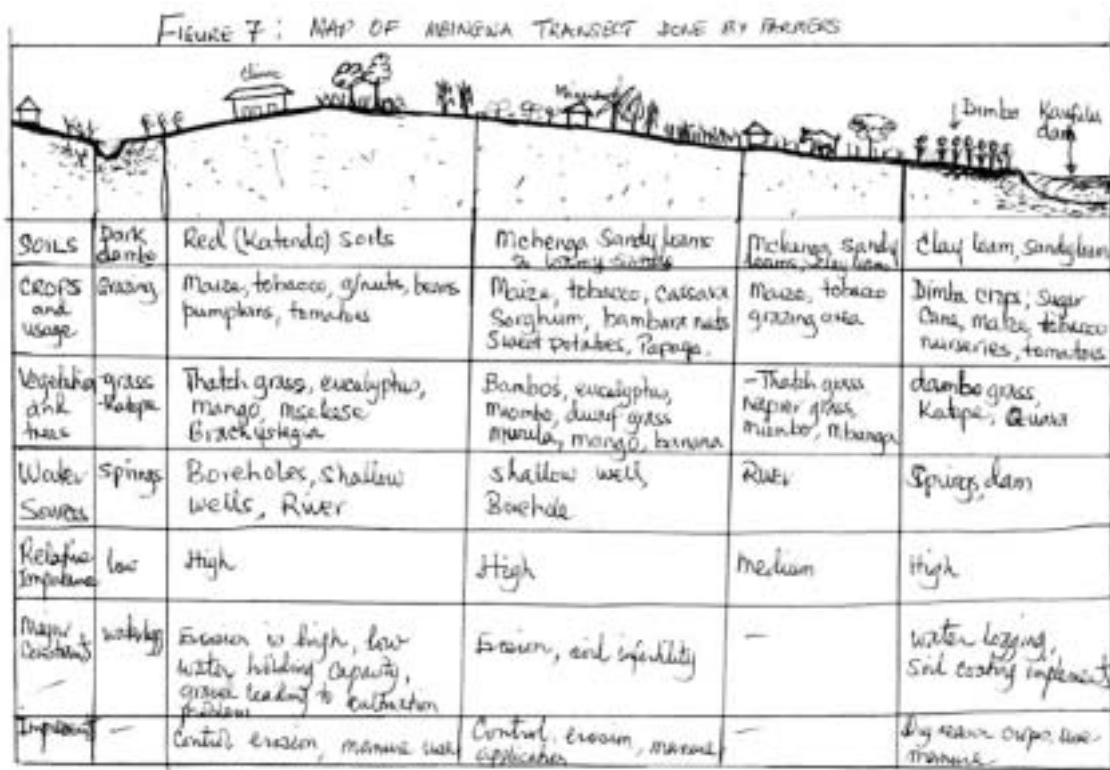 FIGURE 7: MAP OF MBINGWA TRANSECT DONE BY FARMERS
Clinic
Dimbo
Kaufulu
dam
SOILS
Dark
dambo
Red (Katondo) soils
Mchenga Sandy loams
Mchenga sandy
loams, clay loam
Clay loam, sandy loam
CROPS
and
usage
Grazing
Maize, tobacco, g/nuts, beans
pumpkins, tomatoes
Maize, tobacco, Cassava
Sorghum, bambara nuts
Sweet potatoes, Papaya.
Maize, tobacco
grazing area
Dimba crops; Sugar
Cane, maize, tobacco
nurseries, tomatoes
Vegetation
and
trees
-grass
-Katope
Thatch grass, eucalyptus,
mango, msekese
Brachystegia
Bamboo's, eucalyptus,
miombo, dwarf grass
mango, banana
-Thatch grass
napier grass
miombo, Mbanga
dambo grass,
Katope,
Water
Sources
springs
Boreholes, shallow
wells, River
shallow well,
Borehole
River
Springs, dam
Relative
Importance
low
High
High
medium
High
Major
Constraints
waterlogg
Erosion is high, low
water holding capacity,
gravel leading to cultivation
problem
Erosion, soil infertility
—
water logging,
Soil coating implements
—
Control erosion, manure use
Control erosion, manure
application
—
manure